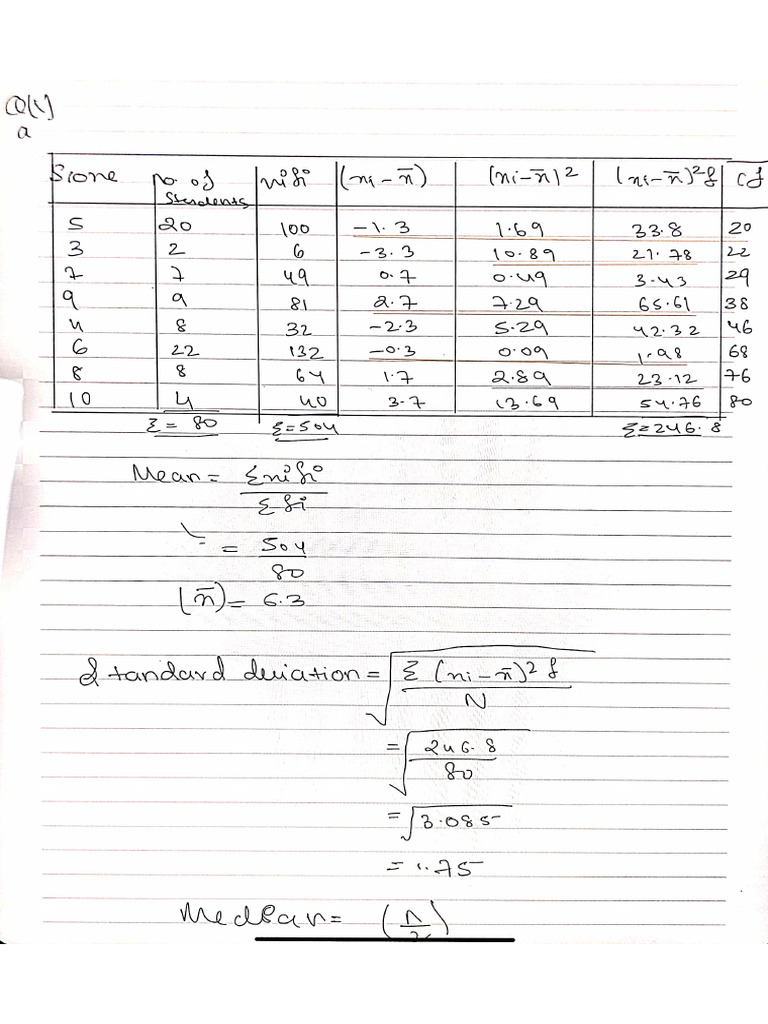 Q(1)
a
Score No. of Students xifi (xi - x̄) (xi - x̄)² (xi - x̄)²f cf
5 20 100 -1.3 1.69 33.8 20
3 2 6 -3.3 10.89 21.78 22
7 7 49 0.7 0.49 3.43 29
9 9 81 2.7 7.29 65.61 38
4 8 32 -2.3 5.29 42.32 46
6 22 132 -0.3 0.09 1.98 68
8 8 64 1.7 2.89 23.12 76
10 4 40 3.7 13.69 54.76 80
Σ = 80 Σ=504 Σ=246.8
Mean = Σxifi
Σfi
= 504
80
(x̄) = 6.3
Standard deviation = √ Σ (xi - x̄)² f
N
= √ 246.8
80
= √3.085
= 1.75
Median = (n
2)